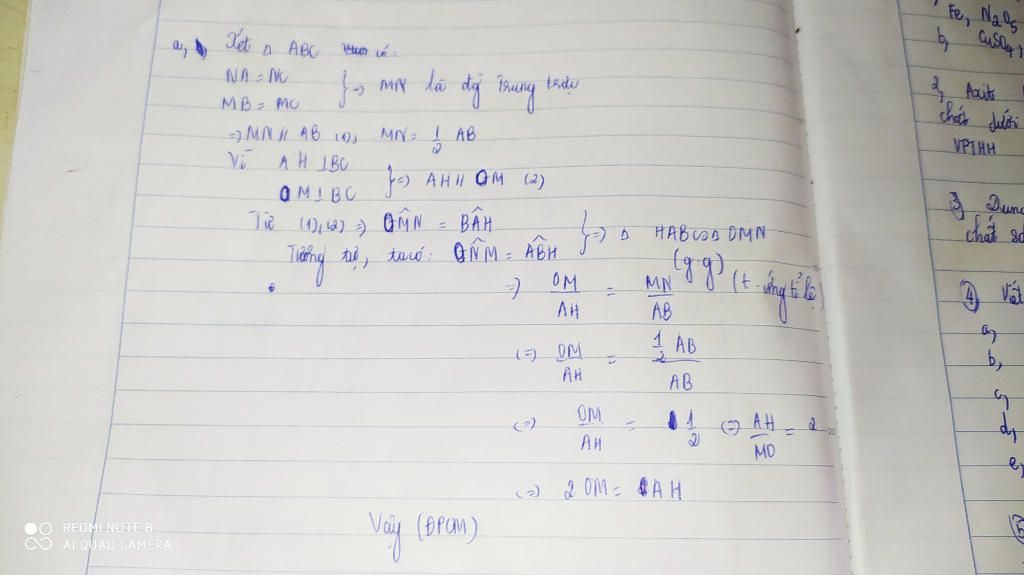 a, Xét Δ ABC có:
NA = NC
MB = MC } => MN là đg̃ Trung trực
=> MN // AB (1), MN = 1/2 AB
Vì AH ⊥ BC
OM ⊥ BC } => AH // OM (2)
Từ (1), (2) => OM̂N = BÂH
Tương tự, ta có: ON̂M = AB̂H } => Δ HAB ∽ Δ OMN
(g.g)
=> OM/AH = MN/AB (t. ứng tỉ lệ)
<=> OM/AH = 1/2 AB / AB
<=> OM/AH = 1/2 <=> AH/MO = 2
<=> 2 OM = AH
Vậy (ĐPCM)
Fe, N2O5
b, CuSO4,
2, Axit
chất dưới
VPTHH
3, Dung
chất sa
4 Viết
a,
b,
c,
d,
e,
5
REDMI NOTE 8
AI QUAD CAMERA